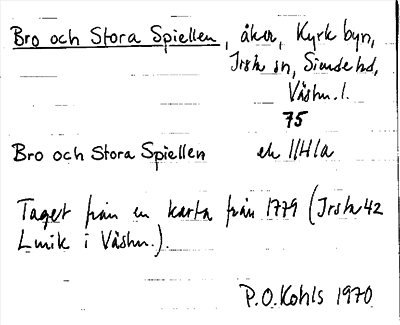 Bro och Stora Spiellen, åker, Kyrkbyn,
Irsta sn, Siende hd,
Västm. l.
75
Bro och Stora Spiellen ek 11H1a
Taget från en karta från 1779 (Irsta 42
Lmik i Västm.).
P.O. Kohls 1970